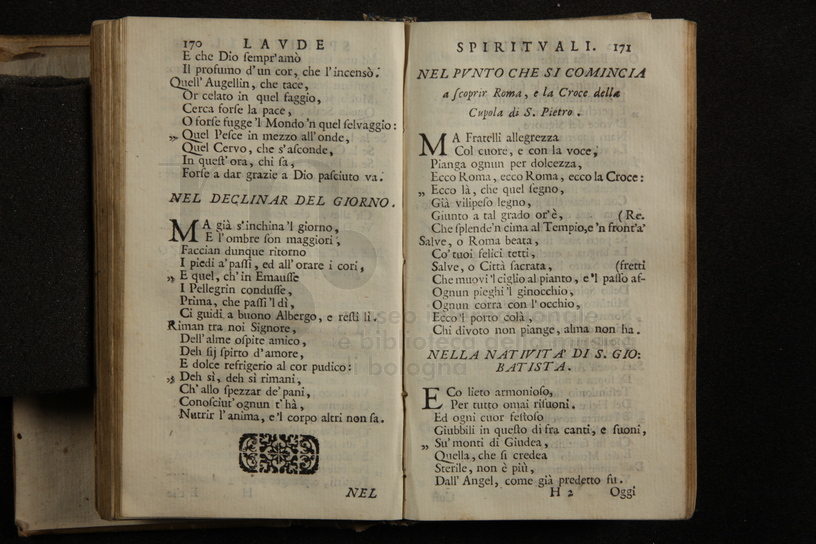 170 LAVDE
E che Dio ſempr'amò
Il profumo d'un cor, che l'incensò.
Quell'Augellin, che tace,
Or celato in quel faggio,
Cerca forſe la pace,
O forſe fugge 'l Mondo 'n quel ſelvaggio:
„ Quel Peſce in mezzo all'onde,
Quel Cervo, che s'aſconde,
In queſt'ora, chi ſa,
Forſe a dar grazie a Dio paſciuto va.
NEL DECLINAR DEL GIORNO.
MA già s'inchina 'l giorno,
E l'ombre ſon maggiori,
Faccian dunque ritorno
I piedi a' paſſi, ed all'orare i cori,
„ E quel, ch'in Emauſſe
I Pellegrin conduſſe,
Prima, che paſſi 'l dì,
Ci guidi a buono Albergo, e reſti lì.
Riman tra noi Signore,
Dell'alme oſpite amico,
Deh ſij ſpirto d'amore,
E dolce refrigerio al cor pudico:
„ Deh sì, deh sì rimani,
Ch'allo ſpezzar de' pani,
Conoſciut'ognun t'hà,
Nutrir l'anima, e 'l corpo altri non ſa.
NEL
SPIRITVALI. 171
NEL PVNTO CHE SI COMINCIA
a ſcoprir Roma, e la Croce della
Cupola di S. Pietro.
MA Fratelli allegrezza
Col cuore, e con la voce,
Pianga ognun per dolcezza,
Ecco Roma, ecco Roma, ecco la Croce:
„ Ecco là, che quel ſegno,
Già vilipeſo legno,
Giunto a tal grado or'è, (Re.
Che ſplende'n cima al Tempio,e 'n front'a'
Salve, o Roma beata,
Co' tuoi felici tetti,
Salve, o Città ſacrata, (fretti
Che muovi 'l ciglio al pianto, e 'l paſſo af-
Ognun pieghi 'l ginocchio,
Ognun corra con l'occhio,
Ecco 'l porto colà,
Chi divoto non piange, alma non ha.
NELLA NATIVITA' DI S. GIO:
BATISTA.
ECo lieto armonioſo,
Per tutto omai riſuoni.
Ed ogni cuor feſtoſo
Giubbili in queſto dì fra canti, e ſuoni,
„ Su' monti di Giudea,
Quella, che ſi credea
Sterile, non è più,
Dall'Angel, come già predetto fu.
H 2 Oggi